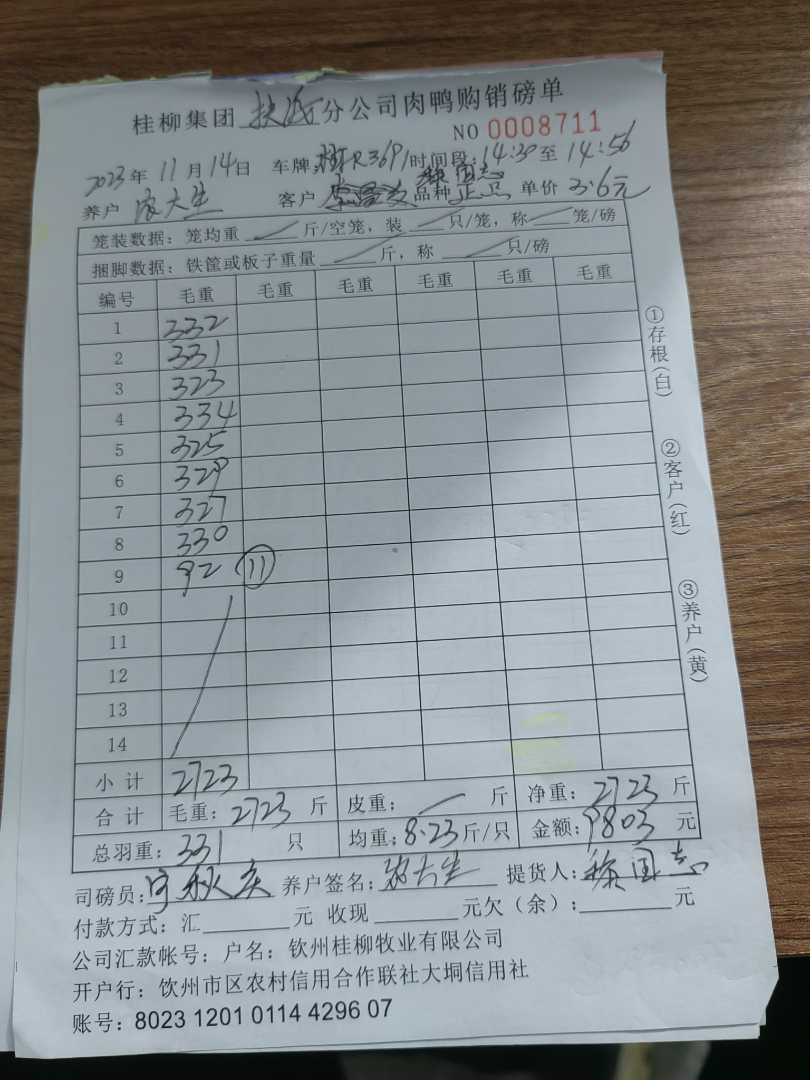 桂柳集团 扶 分公司肉鸭购销磅单
NO 0008711
2023年 11月14日 车牌:桂R3691 时间段:14:30至14:56
养户 大生 客户 品种 单价 3.6元
徐国志
笼装数据: 笼均重 / 斤/空笼, 装 / 只/笼, 称 / 笼/磅
捆脚数据: 铁筐或板子重量 / 斤, 称 / 只/磅
编号 毛重 毛重 毛重 毛重 毛重 毛重
1 332
2 331
3 323
4 334
5 325
6 329
7 327
8 330
9 92 ⑪
10
11
12
13
14
小计 2723
合计 毛重: 2723 斤 皮重: / 斤 净重: 2723 斤
总羽重: 331 只 均重: 8.23 斤/只 金额: 9803 元
司磅员: 秋 养户签名: 大生 提货人: 徐国志
付款方式: 汇 元 收现 元欠(余): 元
公司汇款帐号: 户名: 钦州桂柳牧业有限公司
开户行: 饮州市区农村信用合作联社大垌信用社
账号: 8023 1201 0114 4296 07
①存根(白)
②客户(红)
③养户(黄)